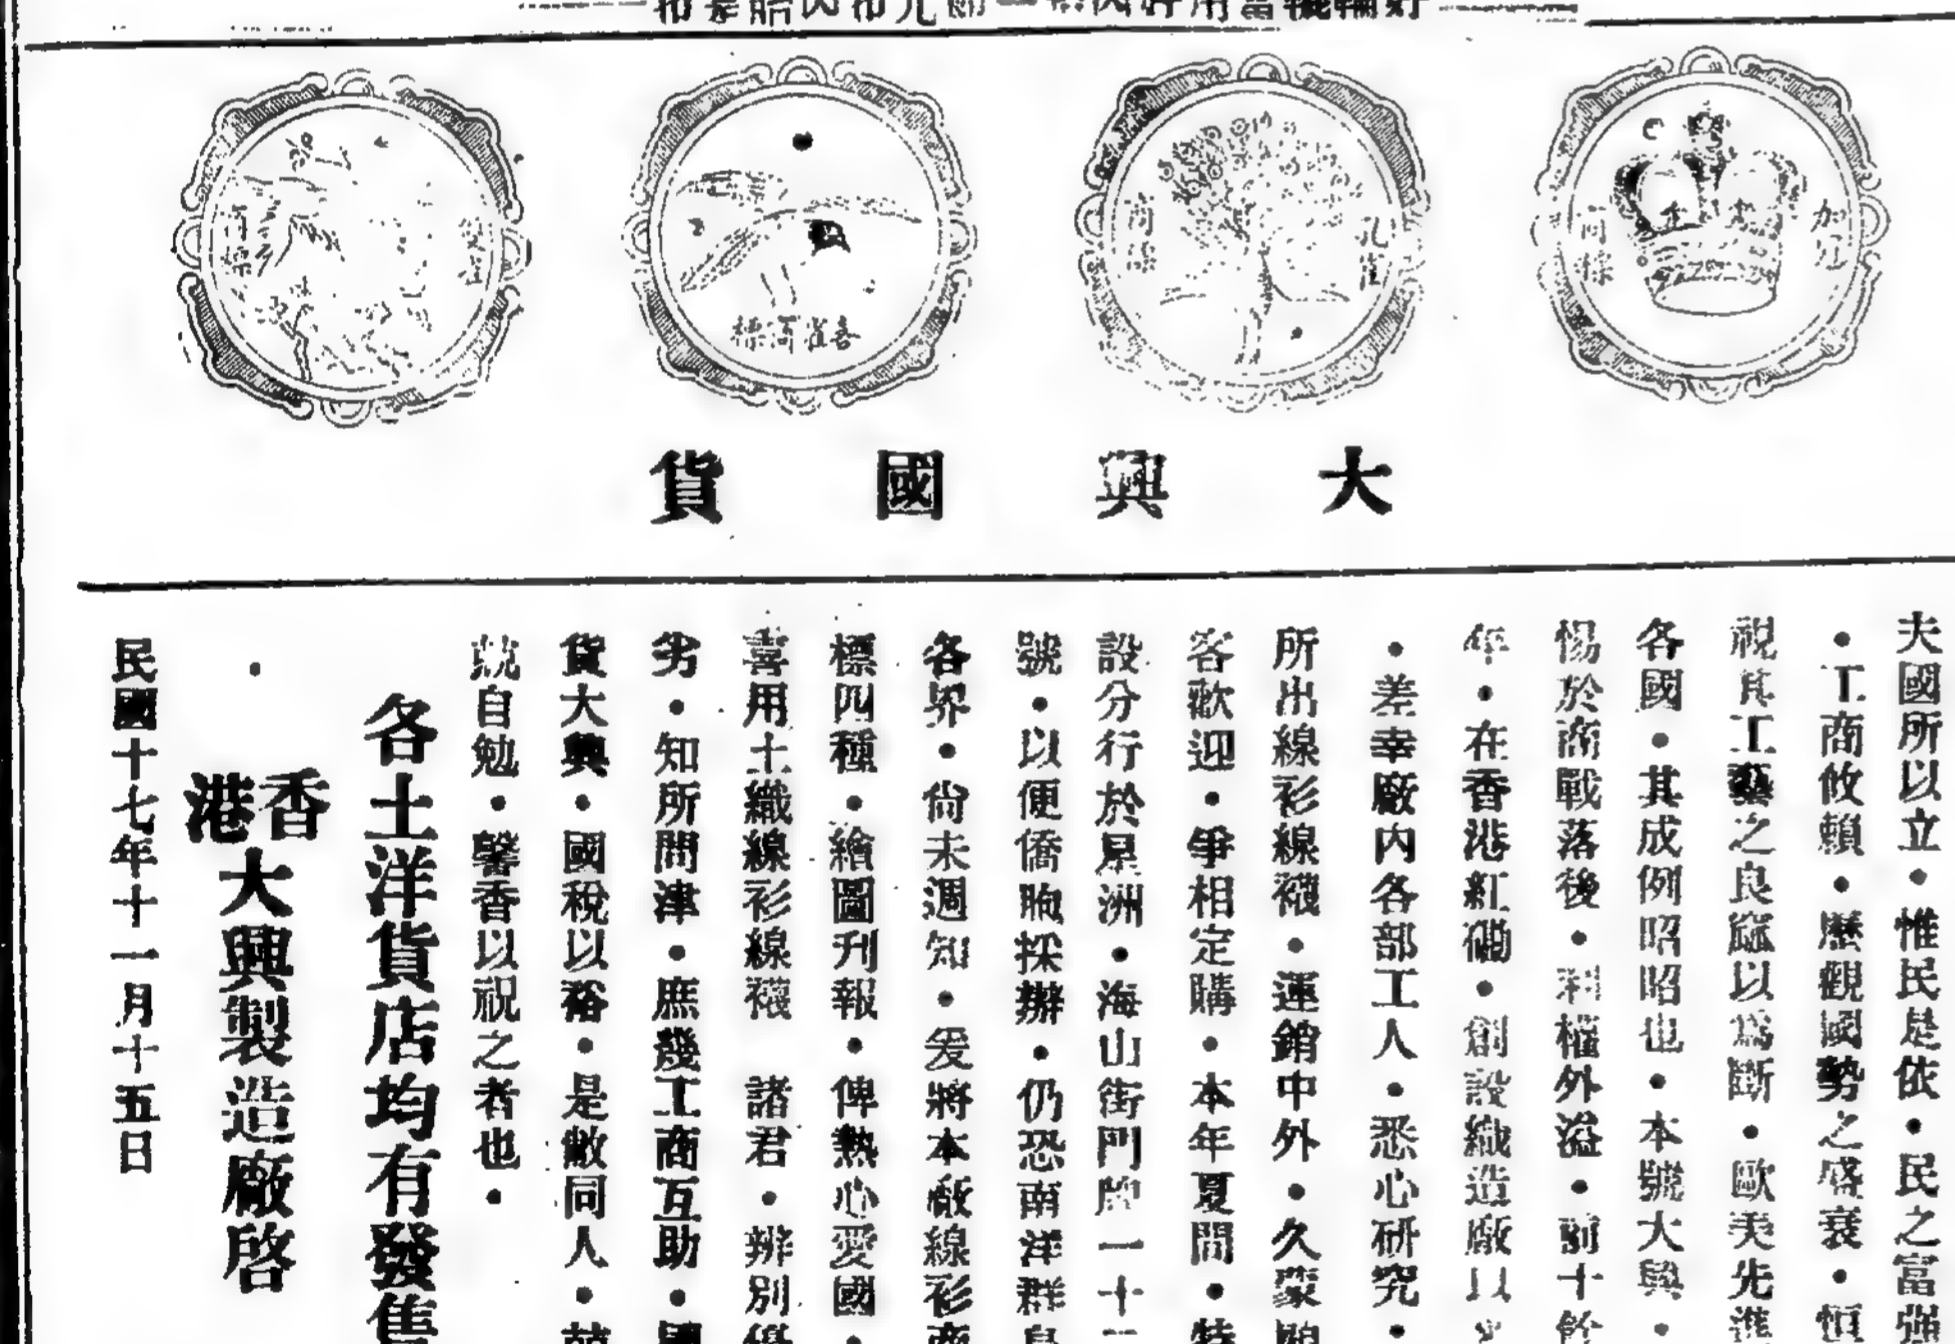 加冠
商標
孔雀
商標
喜雀商標
商標
大興國貨
夫國所以立・惟民是依・民之富強
・工商攸賴・歷觀國勢之盛衰・恒
視其工藝之良窳以為斷・歐美先進
各國・其成例昭昭也・本號大興・
惕於商戰落後・利權外溢・前十餘
年・在香港紅磡・創設織造廠以
・差幸廠内各部工人・悉心研究・
所出線衫線襪・運銷中外・久蒙顧
客歡迎・爭相定購・本年夏間・特
設分行於星洲・海山街門牌一十二
號・以便僑胞採辦・仍恐南洋群島
各界・尙未週知・爰將本廠線衫商
標四種・繪圖刋報・俾熱心愛國・
喜用土織線衫線襪 諸君・辨別優
劣・知所問津・庶幾工商互助・國
貨大興・國稅以裕・是敝同人・兢
兢自勉・馨香以祝之者也・
各土洋貨店均有發售
香港大興製造廠啓
民國十七年十一月十五日